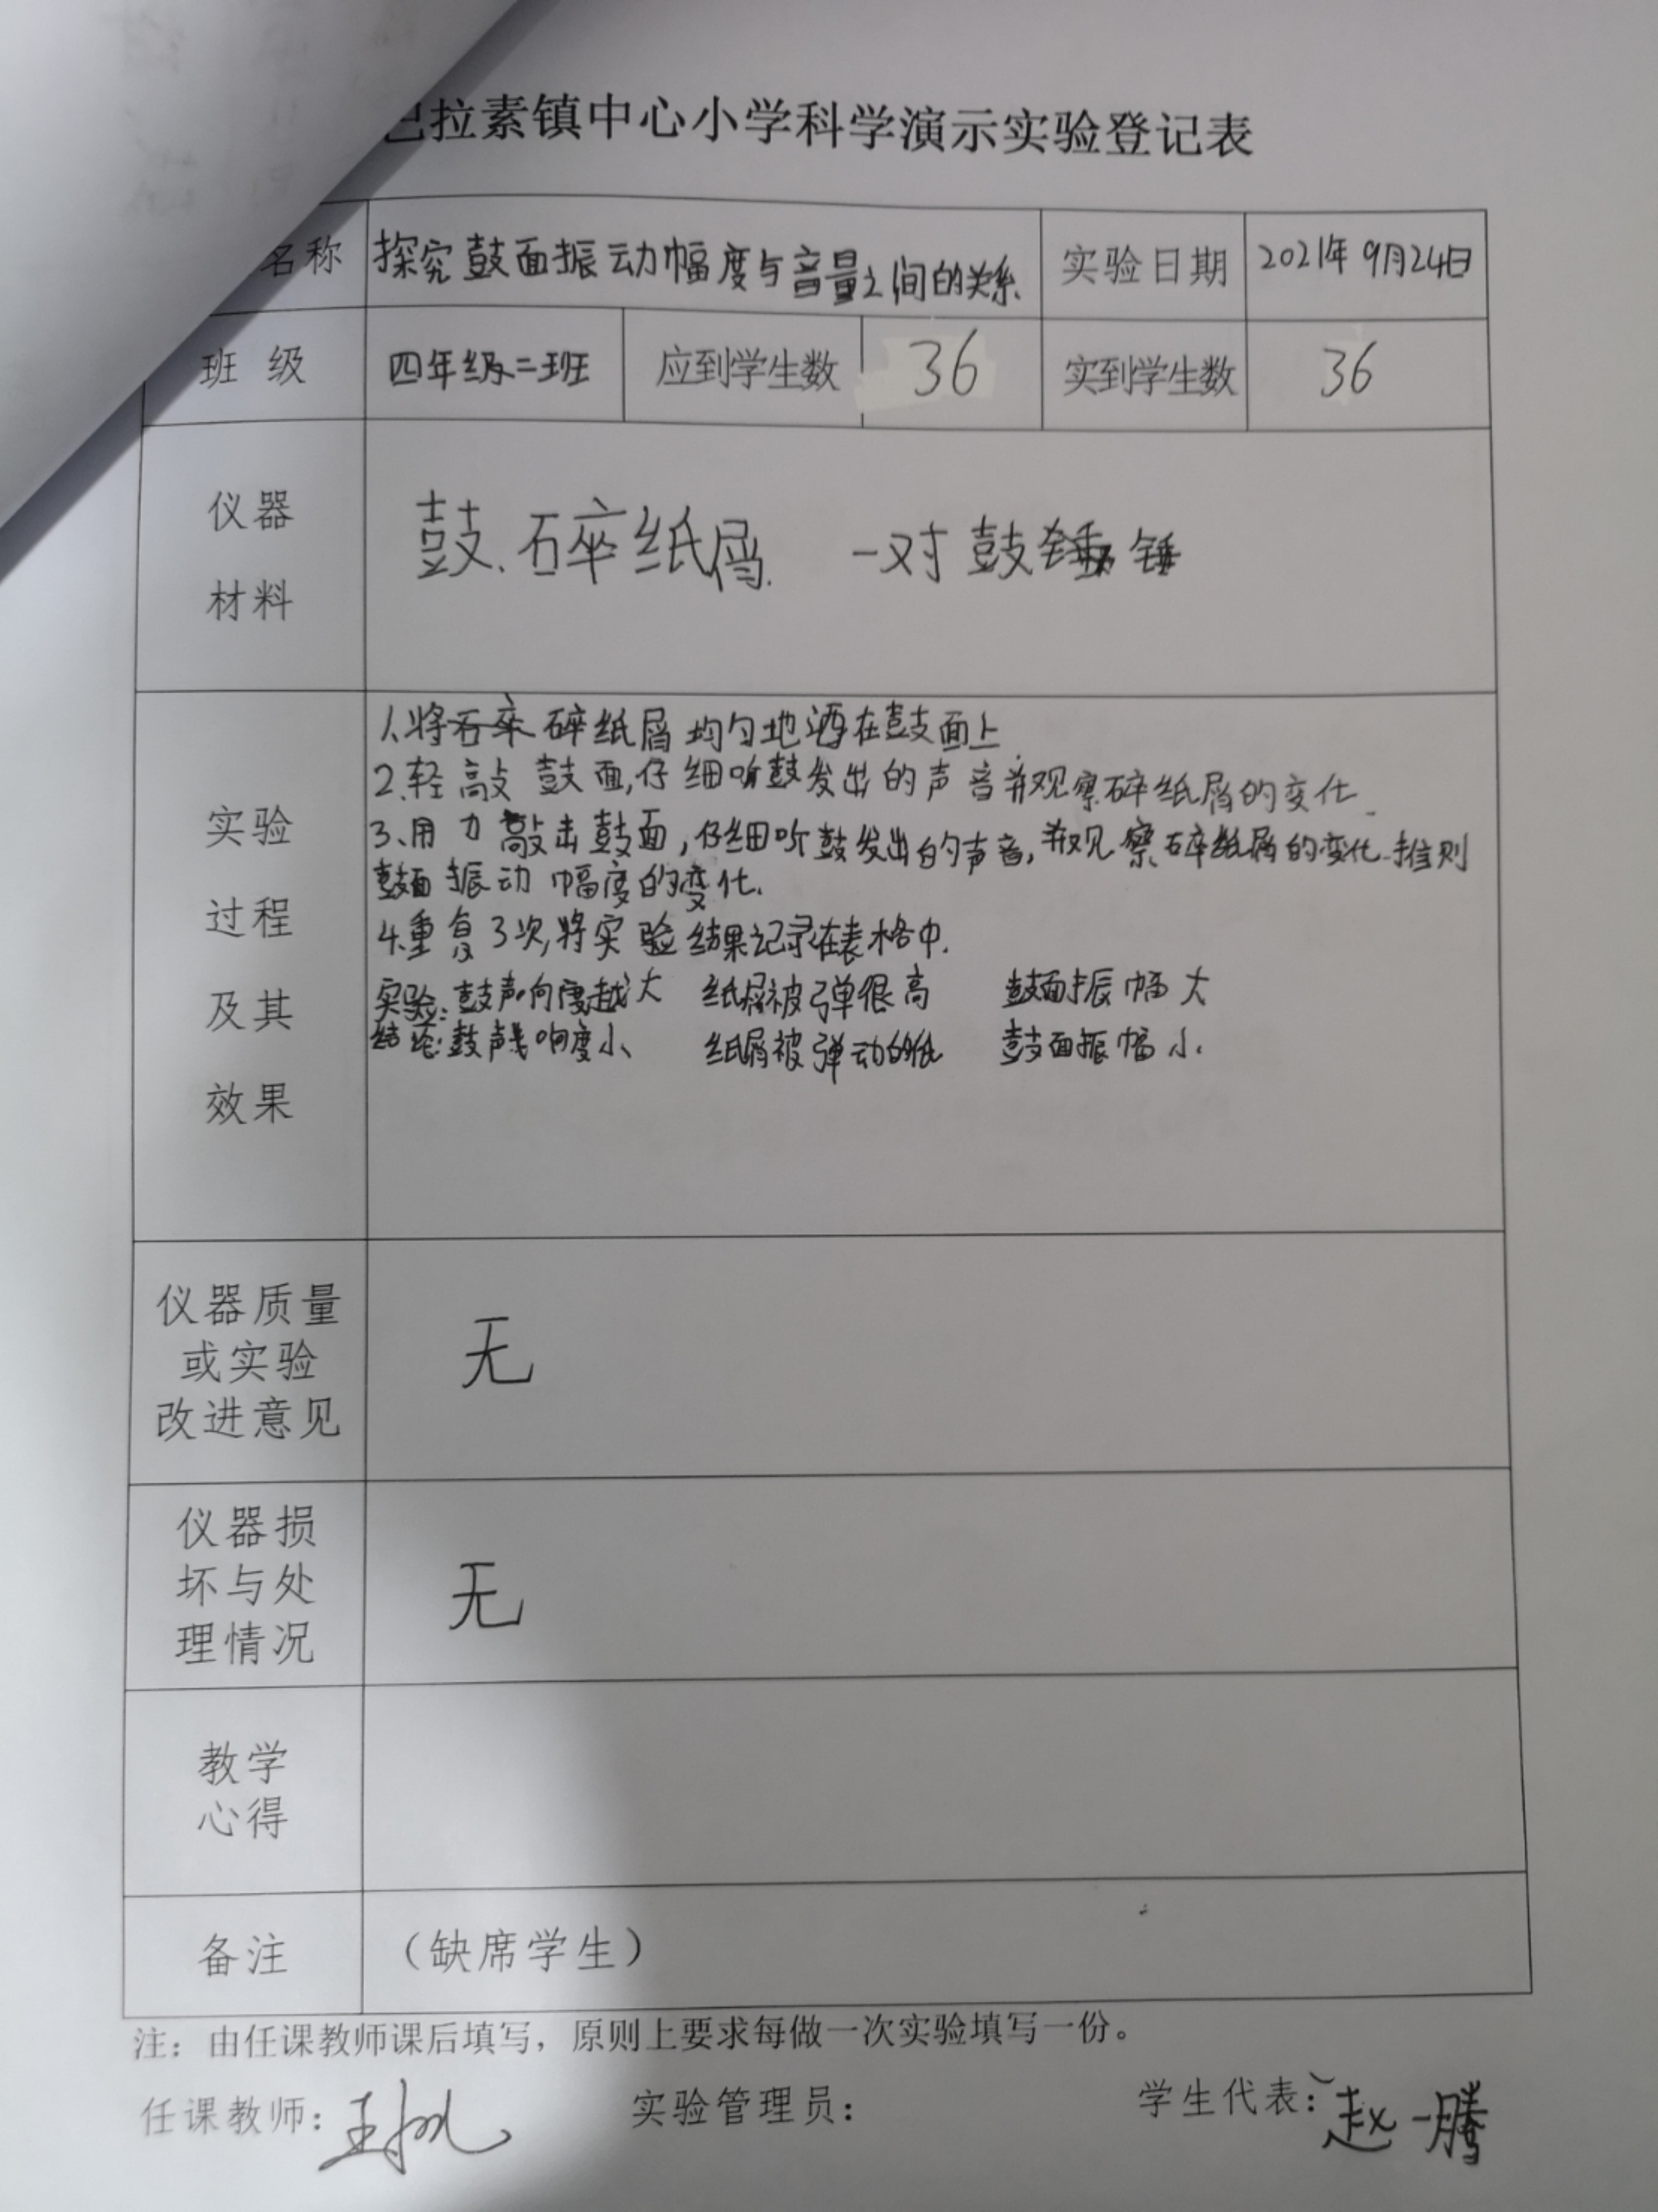 巴拉素镇中心小学科学演示实验登记表
名称 探究鼓面振动幅度与音量之间的关系 实验日期 2021年9月24日
班级 四年级二班 应到学生数 36 实到学生数 36
仪器
材料
鼓、碎纸屑. 一对鼓锤
实验
过程
及其
效果
1、将碎纸屑均匀地洒在鼓面上
2、轻敲鼓面,仔细听鼓发出的声音并观察碎纸屑的变化.
3、用力敲击鼓面,仔细听鼓发出的声音,并观察碎纸屑的变化.推则
鼓面振动幅度的变化.
4.重复3次,将实验结果记录在表格中.
实验:鼓声响度越大 纸屑被弹很高 鼓面振幅大
结论:鼓声响度小、 纸屑被弹动的低 鼓面振幅小.
仪器质量
或实验
改进意见
无
仪器损
坏与处
理情况
无
教学
心得
备注 （缺席学生）
注：由任课教师课后填写，原则上要求每做一次实验填写一份。
任课教师：王 实验管理员： 学生代表：赵一腾